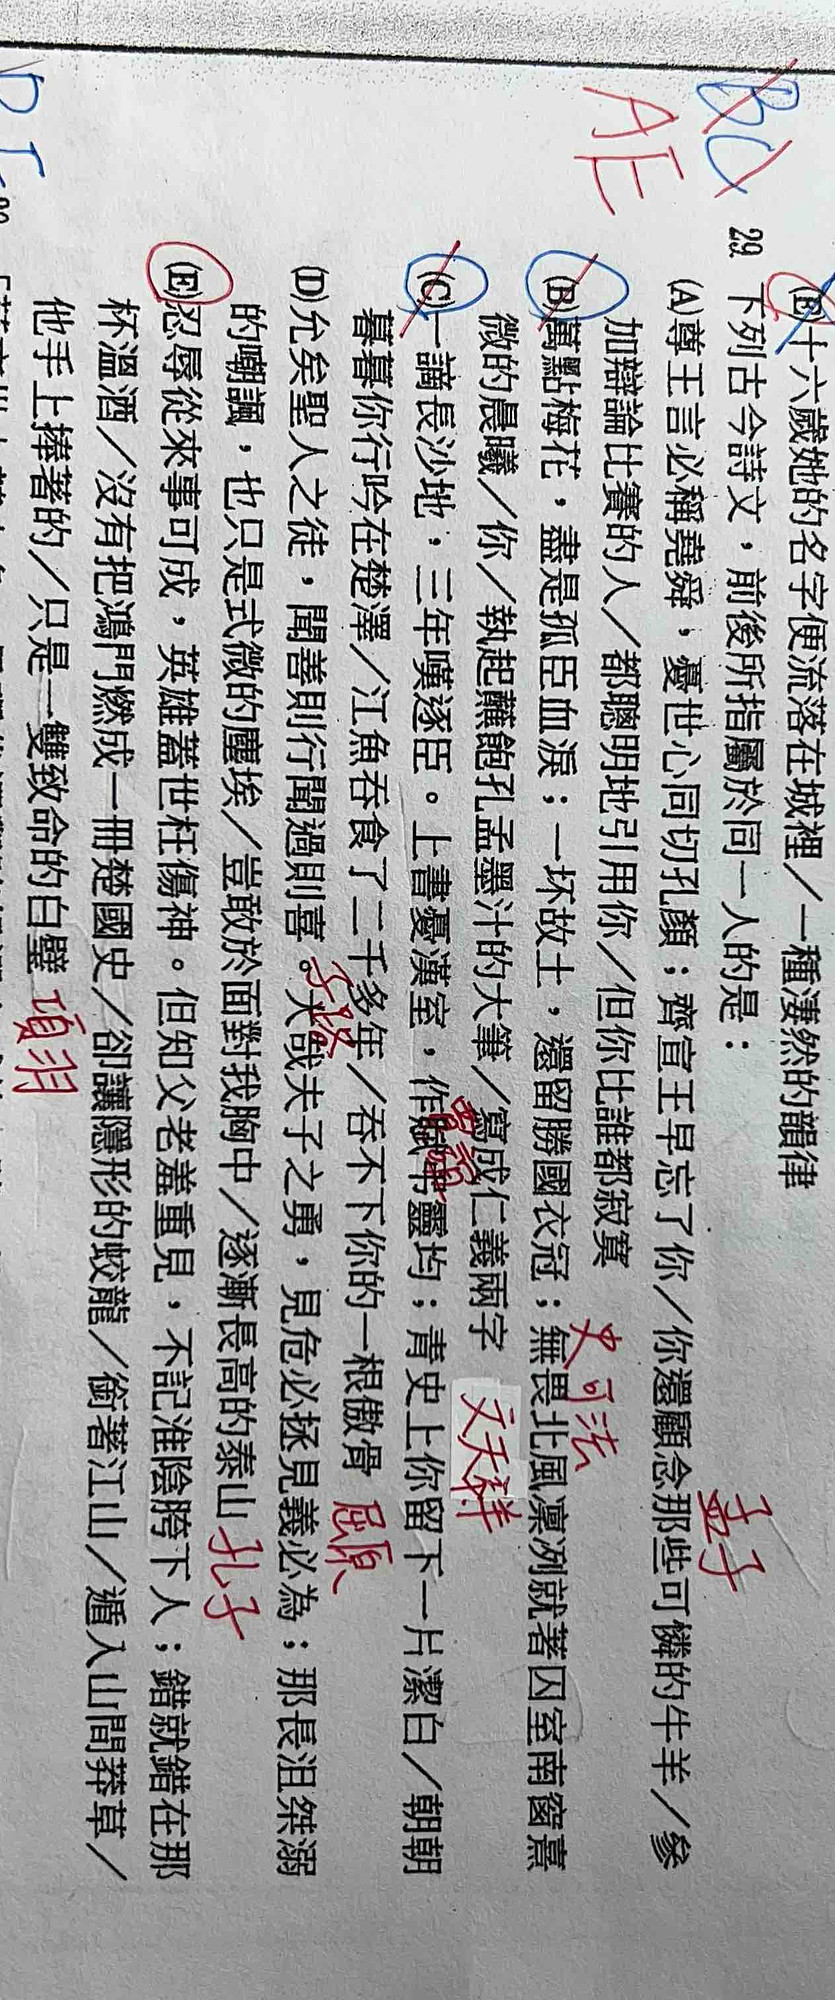 BC
AE
(E)十六歲她的名字便流落在城裡／一種淒然的韻律
29. 下列古今詩文，前後所指屬於同一人的是：
(A)尊王言必稱堯舜，憂世心同切孔顏；齊宣王早忘了你／你還顧念那些可憐的牛羊／參
加辯論比賽的人／都聰明地引用你／但你比誰都寂寞
孟子
(B)萬點梅花，盡是孤臣血淚；一坏故土，還留勝國衣冠；無畏北風凛冽就著囚室南窗熹
史可法
微的晨曦／你／執起蘸飽孔孟墨汁的大筆／寫成仁義兩字
文天祥
(C)一謫長沙地，三年嘆逐臣。上書憂漢室，作賦弔靈均；青史上你留下一片潔白／朝朝
賈誼
暮暮你行吟在楚澤／江魚吞食了二千多年／吞不下你的一根傲骨
屈原
(D)允矣聖人之徒，聞善則行聞過則喜。大哉夫子之勇，見危必拯見義必為；那長沮桀溺
子路
的嘲諷，也只是式微的塵埃／豈敢於面對我胸中／逐漸長高的泰山
孔子
(E)忍辱從來事可成，英雄蓋世枉傷神。但知父老羞重見，不記淮陰胯下人；錯就錯在那
杯溫酒／沒有把鴻門燃成一冊楚國史／卻讓隱形的蛟龍／銜著江山／遁入山間莽草／
他手上捧著的／只是一雙致命的白璧
項羽